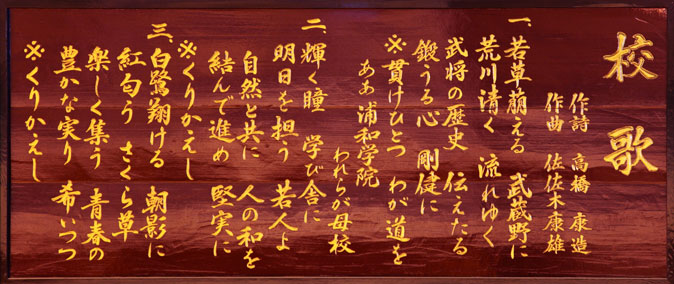 校歌
作詩 高橋 康造
作曲 佐佐木康雄
一、若草萠える 武蔵野に
荒川清く 流れゆく
武将の歴史 伝えたる
鍛うる心 剛健に
※貫けひとつ わが道を
ああ 浦和学院
われらが母校
二、輝く瞳 学び舎に
明日を担う 若人よ
自然と共に 人の和を
結んで進め 堅実に
※くりかえし
三、白鷺翔ける 朝影に
紅匂う さくら草
楽しく集う 青春の
豊かな実り 希いつつ
※くりかえし